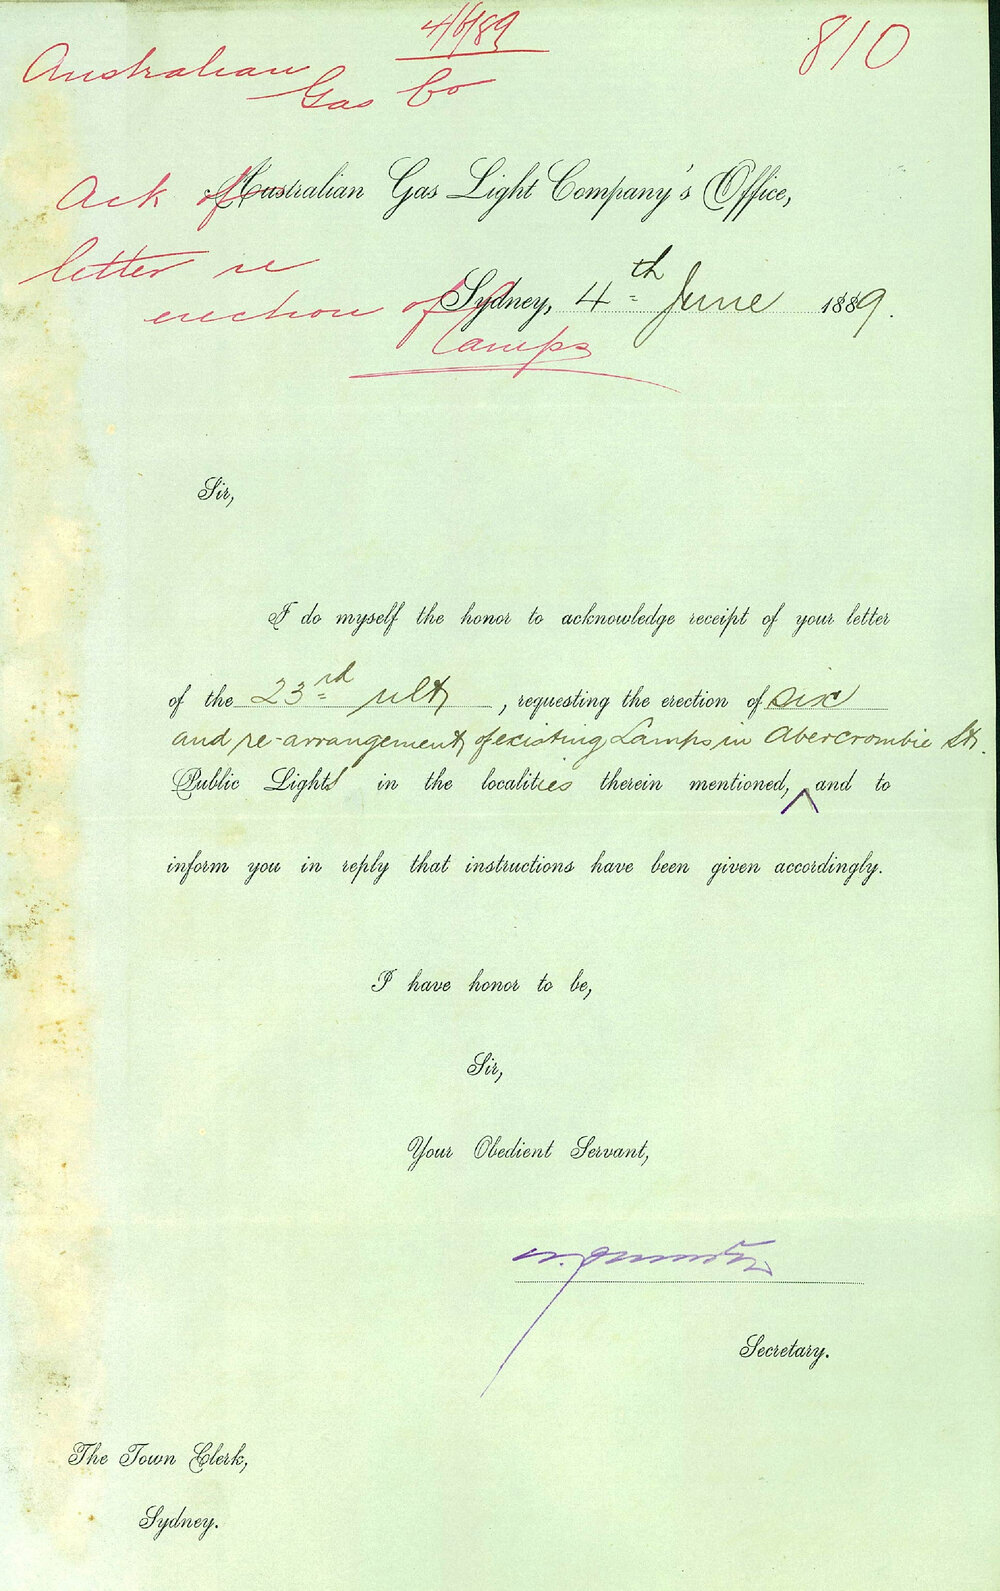 4/6/89
810
Australian
Gas Co
Ack of
Australian Gas Light Company's Office,
letter re
Sydney, 4th June 1889.
erection of
Lamps
Sir,
I do myself the honor to acknowledge receipt of your letter
of the 23rd ulto, requesting the erection of six
and re-arrangement of existing Lamps in Abercrombie St.
Public Lights in the localities therein mentioned, ^ and to
inform you in reply that instructions have been given accordingly.
I have honor to be,
Sir,
Your Obedient Servant,
Secretary.
The Town Clerk,
Sydney.